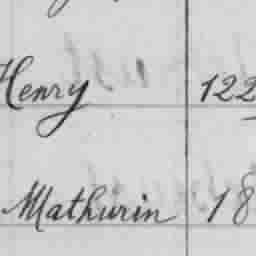 Henry 122
Mathurin 18